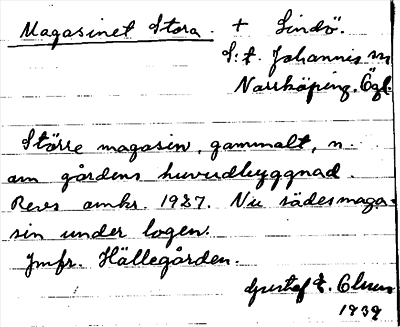 Magasinet Stora. + Lindö.
S:t. Johannis sn
Norrköping. Ögl.
Större magasin, gammalt, n.
om gårdens huvudbyggnad.
Revs omkr. 1927. Nu sädesmaga-
sin under logen.
Jmfr. Hällegården.
Gustaf E.
1939